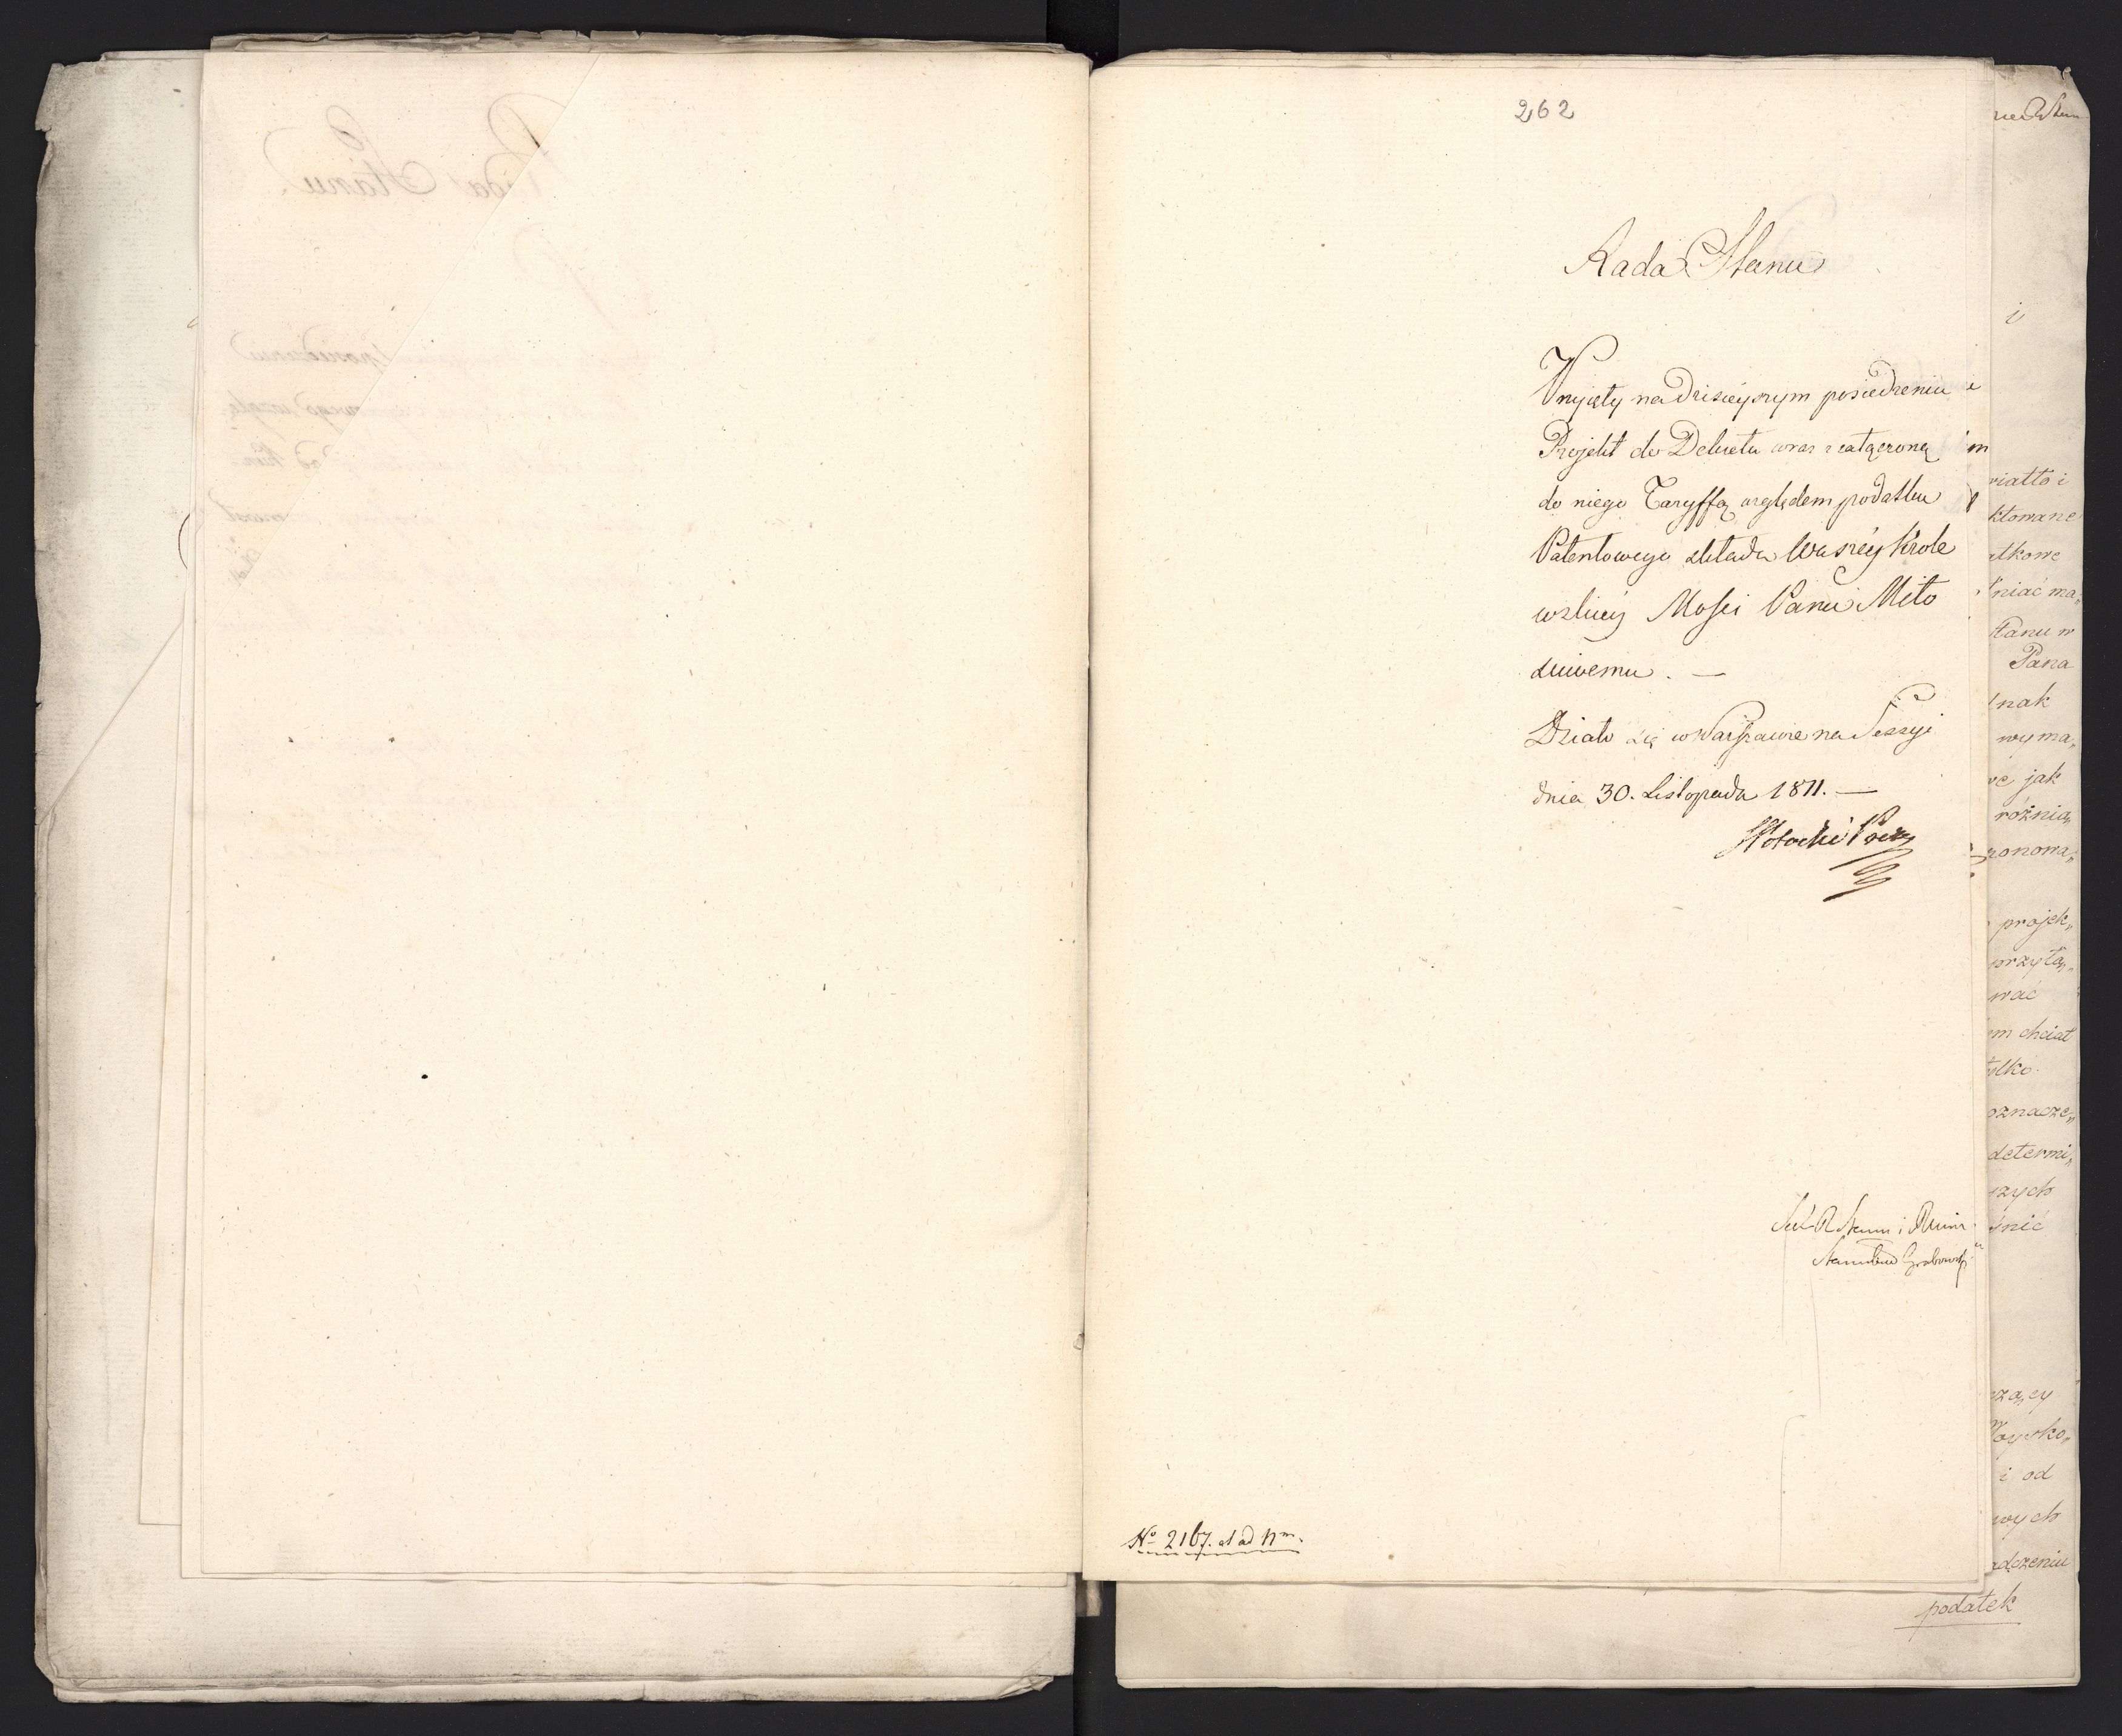 262
Rada Stanu
Przyięty na dzisieyszym posiedzeniu
Projekt do Dekretu wraz z załączoną
do niego Taryffą względem podatku
Patentowego składa Waszéy Króle
wskiéy Mości Panu Miło
ściwemu. —
Działo się w Warszawie na Sessyi
dnia 30. Listopada 1811. —
Potocki Prez
Sek R Stanu i Minis
Stanisław Grabowski
No 2167. et ad Nm.
i
wiatło i
ktowane
atkowe
niać ma„
Stanu w
Pana
nak
wyma„
jak
różnia„
ponowa„
projek„
przyłą„
wać
m chciał
ylko
oznacze„
determi„
szych
śnić
i od
wych
adczeniu
podatek